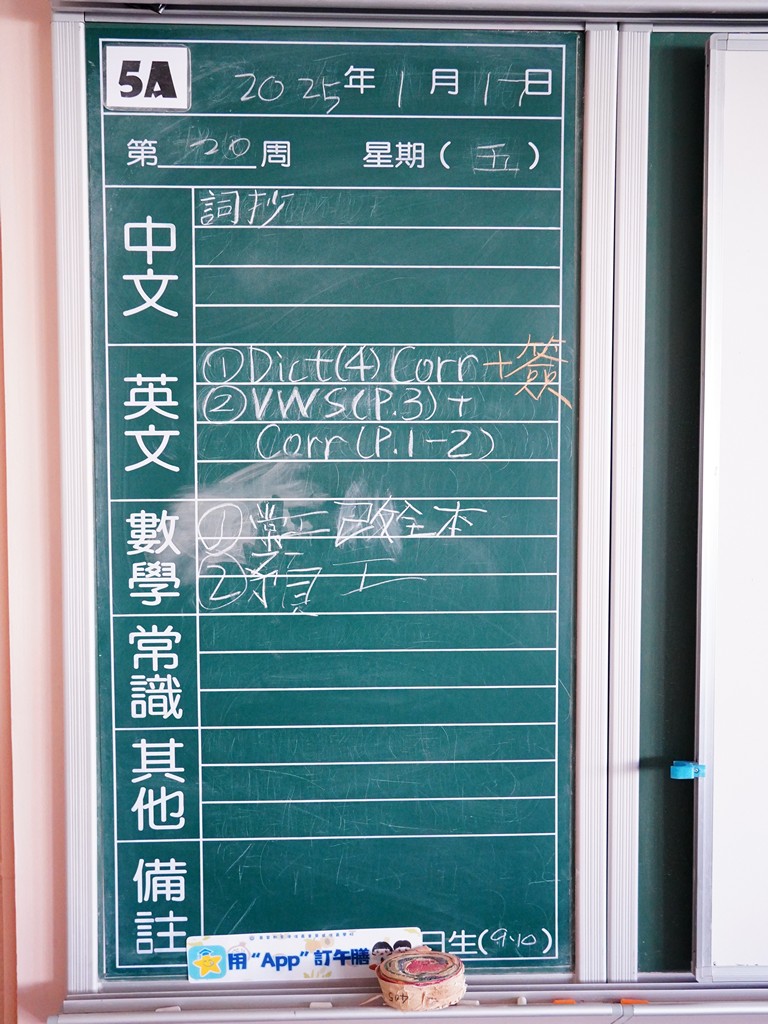 5A 2025年1月17日
第20周 星期(五)
中文 詞抄
英文 ①Dict(4) Corr +簽
②VWS(P.3)+
Corr(P.1-2)
數學 ①常工已改全本
②預工
常識
其他
備註
日生(9.10)
用“App”訂午膳